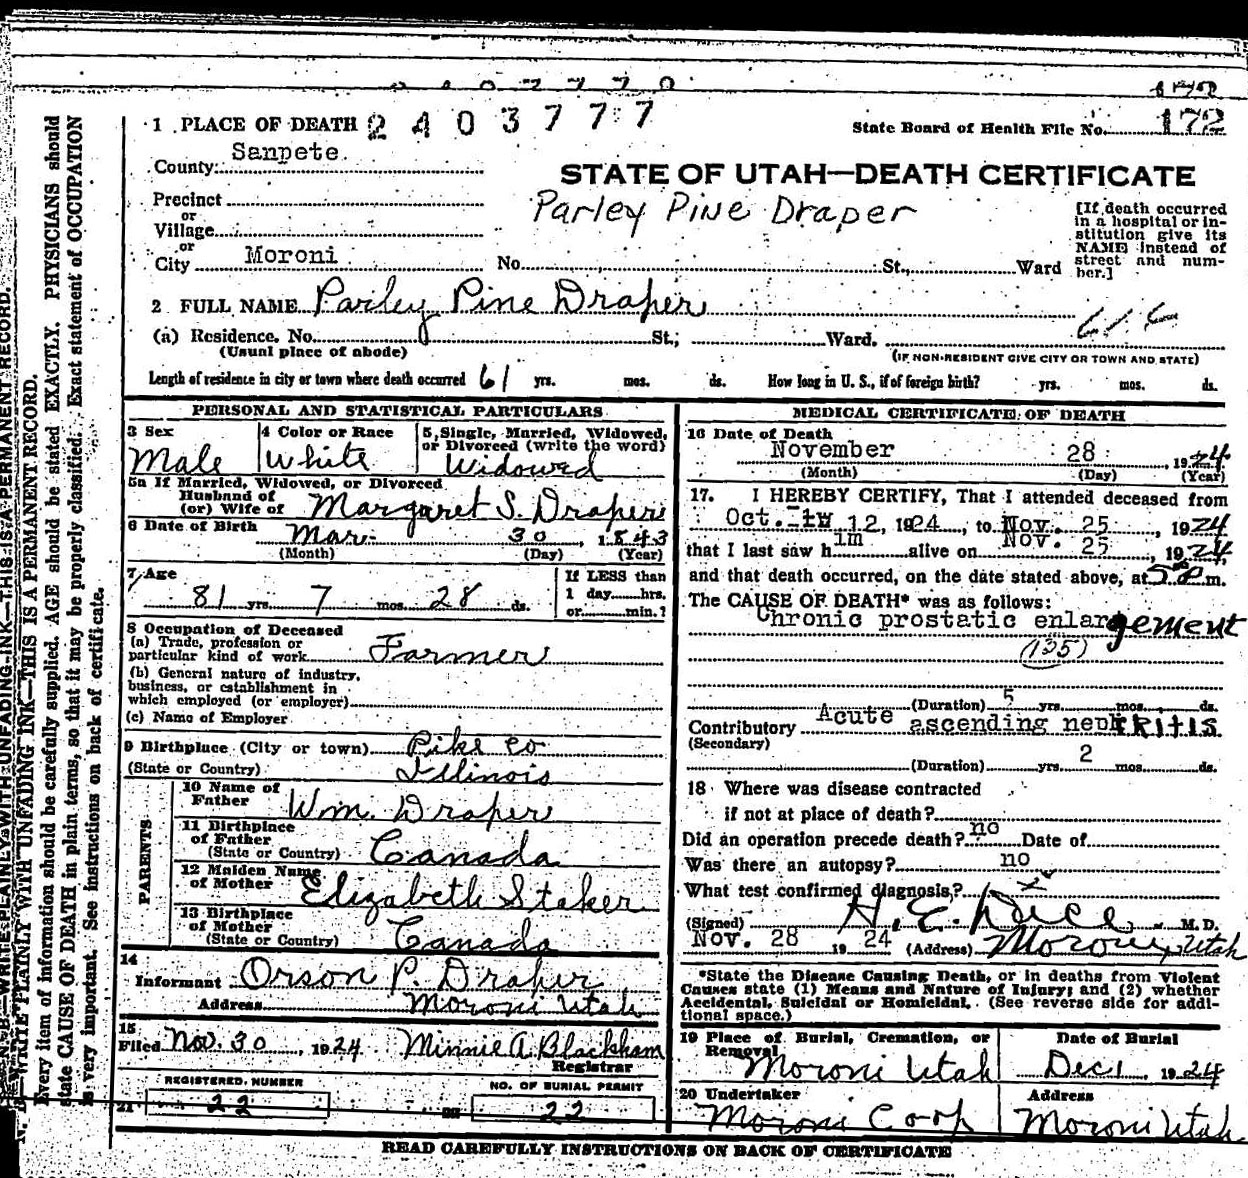 2403777
1 PLACE OF DEATH
State Board of Health File No. 172
County: Sanpete.
STATE OF UTAH—DEATH CERTIFICATE
Parley Pine Draper
Precinct
or
Village
or
City Moroni No. St., Ward
[If death occurred
in a hospital or in-
stitution give its
NAME instead of
street and num-
ber.]
2 FULL NAME Parley Pine Draper
(a) Residence. No. St.; Ward.
(Usual place of abode) (IF NON-RESIDENT GIVE CITY OR TOWN AND STATE)
Length of residence in city or town where death occurred 61 yrs. mos. ds. How long in U. S., if of foreign birth? yrs. mos. ds.
PERSONAL AND STATISTICAL PARTICULARS
3 Sex
Male
4 Color or Race
White
5, Single, Married, Widowed,
or Divorced (write the word)
Widowed
5a If Married, Widowed, or Divorced
Husband of
(or) Wife of Margaret S. Draper
6 Date of Birth
Mar. 30, 1843
(Month) (Day) (Year)
7 Age
81 yrs. 7 mos. 28 ds.
If LESS than
1 day hrs.
or min.?
8 Occupation of Deceased
(a) Trade, profession or
particular kind of work Farmer
(b) General nature of industry,
business, or establishment in
which employed (or employer)
(c) Name of Employer
9 Birthplace (City or town) Pike Co
(State or Country) Illinois
PARENTS
10 Name of
Father Wm. Draper
11 Birthplace
of Father
(State or Country) Canada
12 Maiden Name
of Mother Elizabeth Staker
13 Birthplace
of Mother
(State or Country) Canada
14
Informant Orson P. Draper
Address Moroni Utah
15
Filed Nov. 30, 1924 Minnie A. Blackham
Registrar
REGISTERED NUMBER NO. OF BURIAL PERMIT
21 22 22
MEDICAL CERTIFICATE OF DEATH
16 Date of Death
November 28 1924
(Month) (Day) (Year)
17. I HEREBY CERTIFY, That I attended deceased from
Oct. 12, 1924, to Nov. 25, 1924
that I last saw him alive on Nov. 25, 1924,
and that death occurred, on the date stated above, at 5 P.m.
The CAUSE OF DEATH* was as follows:
Chronic prostatic enlargement
(135)
(Duration) 5 yrs. mos. ds.
Contributory Acute ascending nephritis
(Secondary)
(Duration) yrs. 2 mos. ds.
18 Where was disease contracted
if not at place of death?
Did an operation precede death? no Date of
Was there an autopsy? no
What test confirmed diagnosis?
(Signed) H. E. M.D.
Nov. 28 1924 (Address) Moroni, Utah
*State the Disease Causing Death, or in deaths from Violent
Causes state (1) Means and Nature of Injury; and (2) whether
Accidental, Suicidal or Homicidal. (See reverse side for addi-
tional space.)
19 Place of Burial, Cremation, or
Removal
Moroni Utah
Date of Burial
Dec 1, 1924
20 Undertaker
Moroni Coop
Address
Moroni Utah
READ CAREFULLY INSTRUCTIONS ON BACK OF CERTIFICATE
N. B.—WRITE PLAINLY WITH UNFADING INK—THIS IS A PERMANENT RECORD.
Every item of information should be carefully supplied. AGE should be stated EXACTLY. PHYSICIANS should
state CAUSE OF DEATH in plain terms, so that it may be properly classified. Exact statement of OCCUPATION
is very important. See instructions on back of certificate.